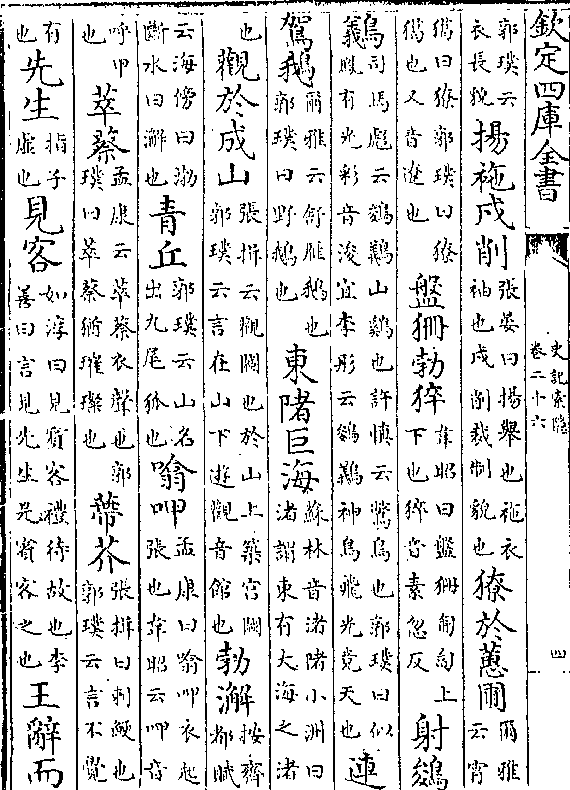 欽定四庫全書
史記索隱
卷二十六
四
郭璞云衣長貌揚袘戌削張晏曰揚舉也袘衣袖也戌削裁制貌也獠於蕙圃爾雅云宵
獦曰獠郭璞曰獠獦也又音遼也盤珊勃猝韋昭曰盤珊匍匐上下也猝音素忽反射鵔
鸃司馬彪云鵔鸃山鷄也許慎云鷩鳥也郭璞曰似鳳有光彩音浚宜李彤云鵔鸃神鳥飛光竟天也連
駕鵝爾雅云舒雁鵝也郭璞曰野鵝也東陼巨海蘇林音渚陼小洲曰渚謂東有大海之渚
也觀於成山張揖云觀闕也於山上築宮闕郭璞云言在山下遊觀音館也勃澥按齊都賦
云海傍曰渤斷水曰澥也青丘郭璞云山名出九尾狐也噏呷孟康曰噏呷衣起張也韋昭云呷音
呼甲也萃蔡孟康云萃蔡衣聲也郭璞曰萃蔡猶璀璨也蔕芥張揖曰刺鯁也郭璞云言不覺
有也先生指子虛也見客如淳曰見賓客禮待故也李善曰言見先生是賓客之也王辭而